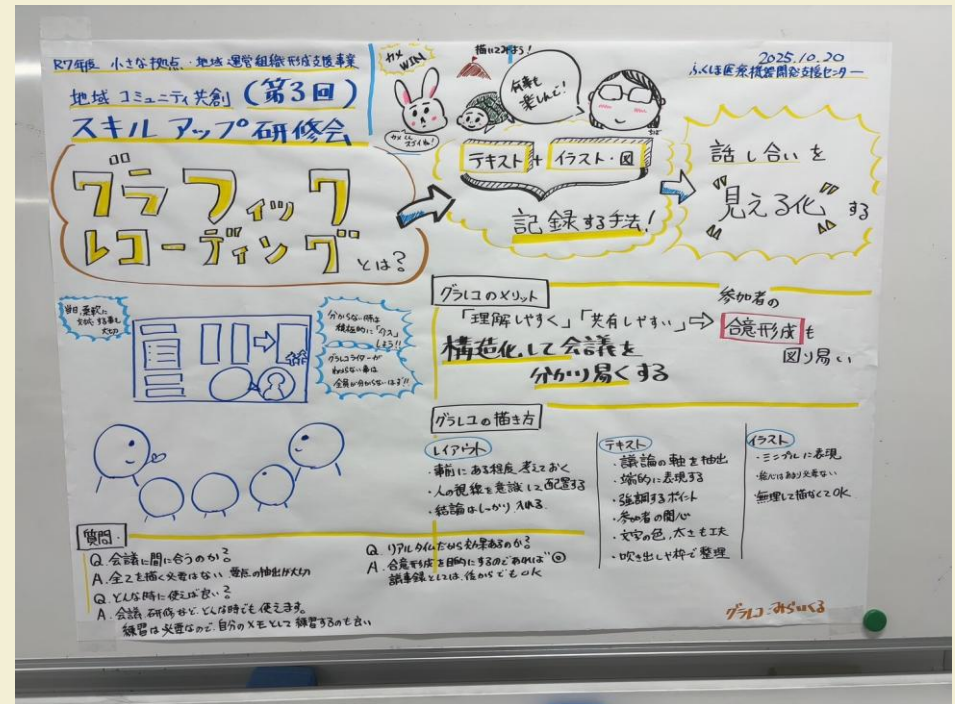 R7年度 小さな拠点・地域運営組織形成支援事業
地域コミュニティ共創(第3回)
スキルアップ研修会
カメ
WIN
描いてみよう!
何事も
楽しんで!
カメくん
スゴイね!
2025.10.20
ふくしま医療機器開発支援センター
グラフィック
レコーディング
とは?
テキスト+イラスト・図
記録する手法!
話し合いを
"見える化"する
当日、柔軟に
対応する事も
大切
分からない時は
積極的に「タスク」
しよう!!
グラレコライターが
わからない事は
全員が分からないはず!!
グラレコのメリット
「理解しやすく」「共有しやすい」⇨
参加者の
合意形成も
図り易い
構造化して会議を
分かり易くする
グラレコの描き方
レイアウト
・事前にある程度考えておく
・人の視線を意識して配置する
・結論はしっかり入れる
テキスト
・議論の軸を抽出
・端的に表現する
・強調するポイント
・参加者の関心
・文字の色、太さも工夫
・吹き出しや枠で整理
イラスト
・シンプルに表現
・絵心はあまり必要ない
・無理して描なくてOK
質問.
Q. 会議に間に合うのか?
A. 全てを描く必要はない 要点の抽出が大切
Q. どんな時に使えば良い?
A. 会議、研修など、どんな時でも使えます。
練習は必要なので、自分のメモとして練習するのも良い
Q. リアルタイムだから効果あるのか?
A. 合意形成を目的にするのであれば◎
議事録としては、後からでもOK
グラレコ:みらいくる